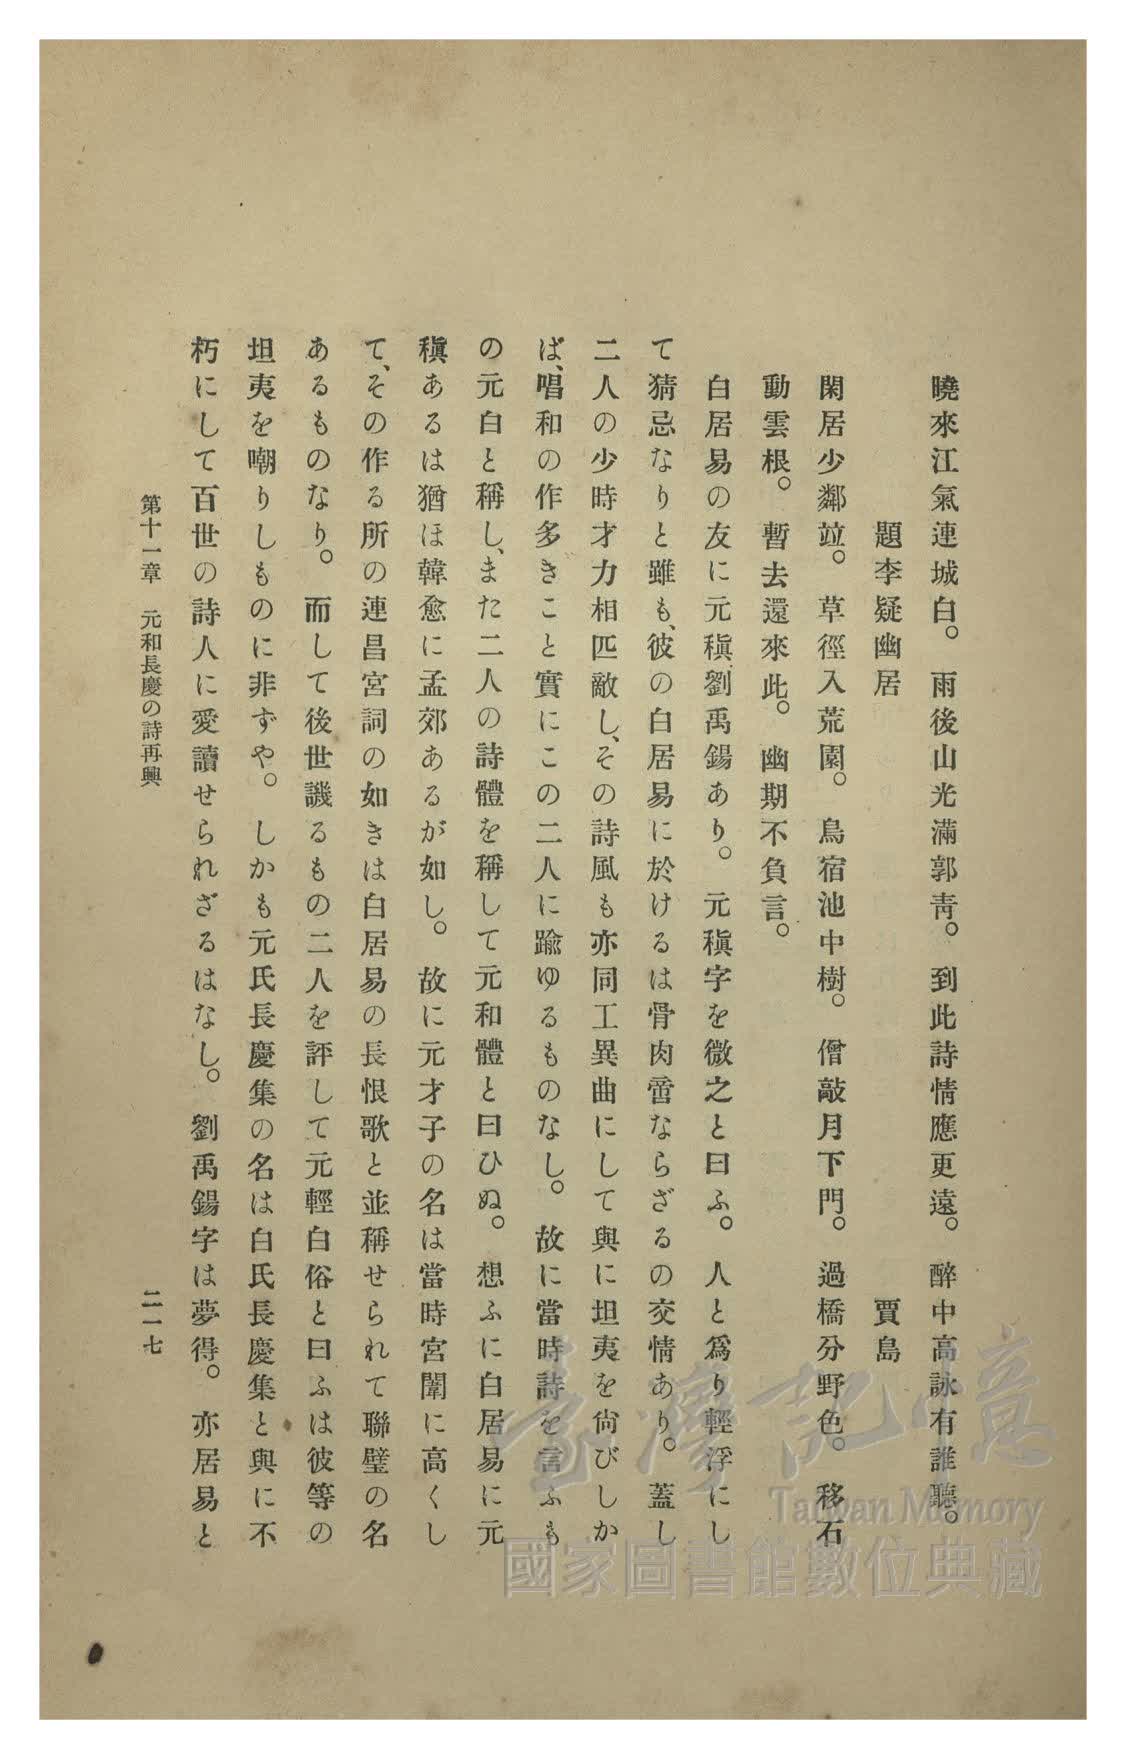 曉來江氣連城白。雨後山光滿郭靑。到此詩情應更遠。醉中高詠有誰聽。
題李疑幽居　賈島
閑居少鄰竝。草徑入荒園。鳥宿池中樹。僧敲月下門。過橋分野色。移石
動雲根。暫去還來此。幽期不負言。
白居易の友に元稹劉禹錫あり。元稹字を微之と曰ふ。人と爲り輕浮にし
て猜忌なりと雖も、彼の白居易に於けるは骨肉啻ならざるの交情あり。蓋し
二人の少時才力相匹敵し、その詩風も亦同工異曲にして與に坦夷を尙びしか
ば、唱和の作多きこと實にこの二人に踰ゆるものなし。故に當時詩を言ふも
の元白と稱し、また二人の詩體を稱して元和體と曰ひぬ。想ふに白居易に元
稹あるは猶ほ韓愈に孟郊あるが如し。故に元才子の名は當時宮闈に高くし
て、その作る所の連昌宮詞の如きは白居易の長恨歌と並稱せられて聯璧の名
あるものなり。而して後世譏るもの二人を評して元輕白俗と曰ふは彼等の
坦夷を嘲りしものに非ずや。しかも元氏長慶集の名は白氏長慶集と與に不
朽にして百世の詩人に愛讀せられざるはなし。劉禹錫字は夢得。亦居易と
第十一章　元和長慶の詩再興　二一七
臺灣記憶
Taiwan Memory
國家圖書館數位典藏